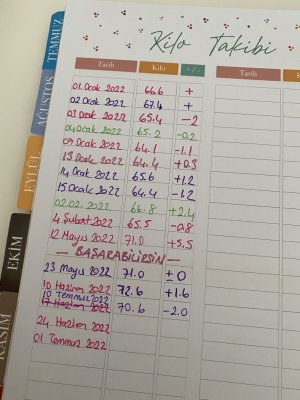 Kilo Takibi
Tarih Kilo + / - Tarih K
01 Ocak 2022 66.6 +
02 Ocak 2022 67.4 +
03 Ocak 2022 65.4 -2
04 Ocak 2022 65.2 -0.2
09 Ocak 2022 64.1 -1.1
13 Ocak 2022 64.4 +0.3
14 Ocak 2022 65.6 +1.2
15 Ocak 2022 64.4 -1.2
02.02.2022 66.8 +2.4
4 Şubat 2022 65.5 -0.8
12 Mayıs 2022 71.0 +5.5
— BAŞARABİLİRSİN —
23 Mayıs 2022 71.0 ± 0
10 Haziran 2022 72.6 +1.6
10 Temmuz 2022 70.6 -2.0
17 Haziran 2022
24 Haziran 2022
01 Temmuz 2022
TEMMUZ
AĞUSTOS
EYLÜL
EKİM
KASIM